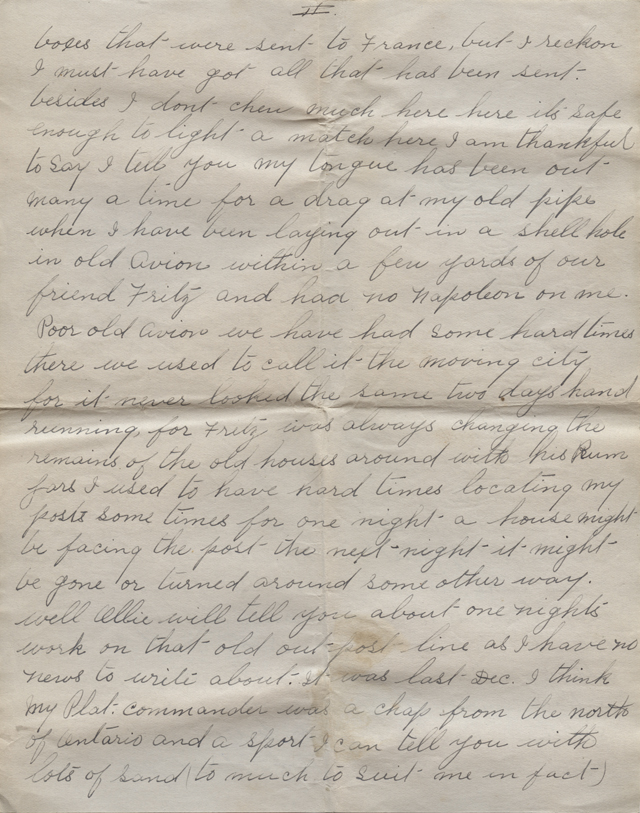 II.
boxes that were sent to France, but I reckon
I must have got all that has been sent.
besides I dont chew much here here its safe
enough to light a match here, I am thankful
to say I tell you my tongue has been out
many a time for a drag at my old pipe
when I have been laying out in a shell hole
in old Avion within a few yards of our
friend Fritz and had no Napoleon on me.
Poor old Avion we have had some hard times
there we used to call it the moving city
for it never looked the same two days hand
running, for Fritz was always changing the
remains of the old houses around with his Rum
Jars I used to have hard times locating my
posts some times for one night a house might
be facing the post the next night it might
be gone or turned around some other way.
well Ollie will tell you about one nights
work on that old out-post line as I have no
news to write about. It was last Dec. I think
my Plat. commander was a chap from the north
of Ontario and a sport I can tell you with
lots of sand (to much to suit me in fact)